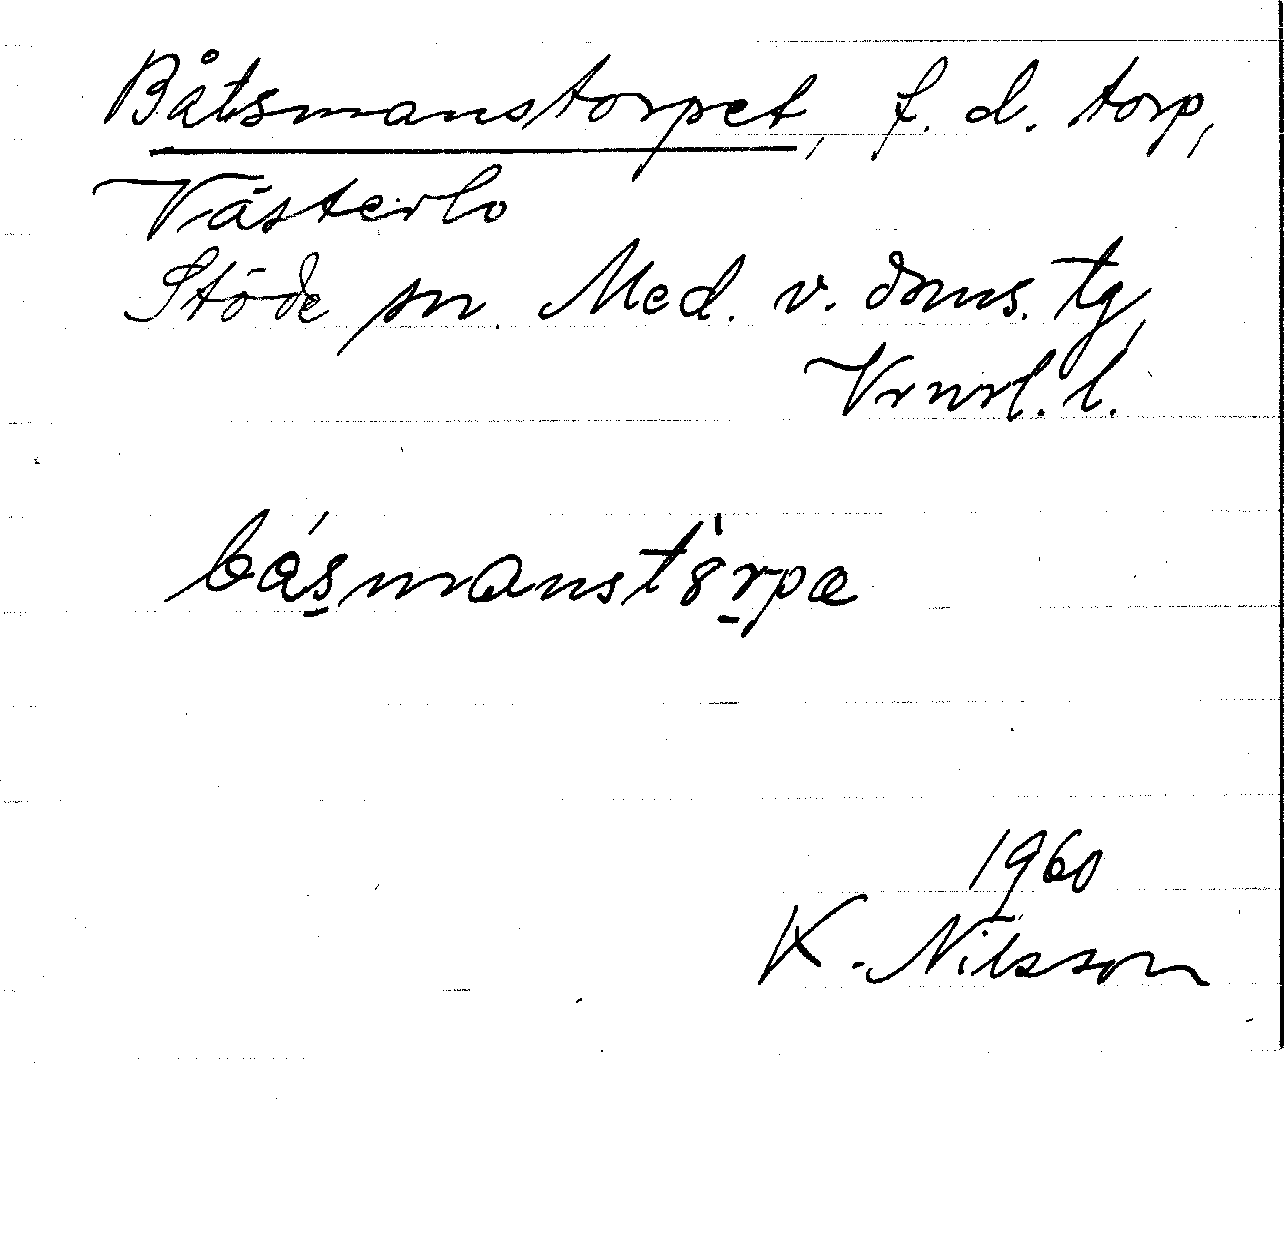 Båtsmanstorpet, f. d. torp,
Västerlo
Stöde sn. Med. v. doms. tg,
Vrnrl. l.
básmanstörpa
1960
K. Nilsson